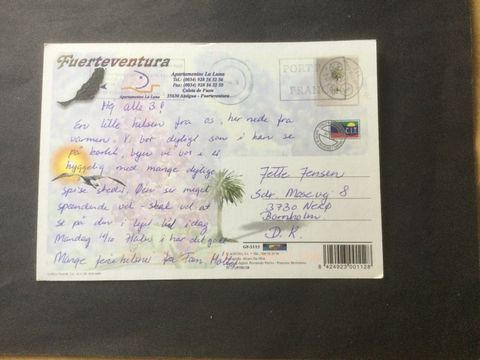 Fuerteventura
Apartamentos La Luna
Tel.: (0034) 928 16 32 56
Fax: (0034) 928 16 32 55
Caleta de Fuste
35610 Antigua - Fuerteventura
Apartamentos La Luna
Hej alle 3!
En lille hilsen fra os, her nede fra
varmen. Vi bor dejligt som i kan se
på kortet, byen vi bor i er
hyggelig med mange dejlige
spise steder. Øen ser meget
spændende ud - skal ud at
se på den i lejet bil i dag
Mandag Håber i har det godt
Mange ferie hilsner fra Fam
PORT
FRAN
Jette Jensen
Sdr. Mosevej 8
3730 Nexø
Bornholm
D.K.
GF-5115
8 424923 001128